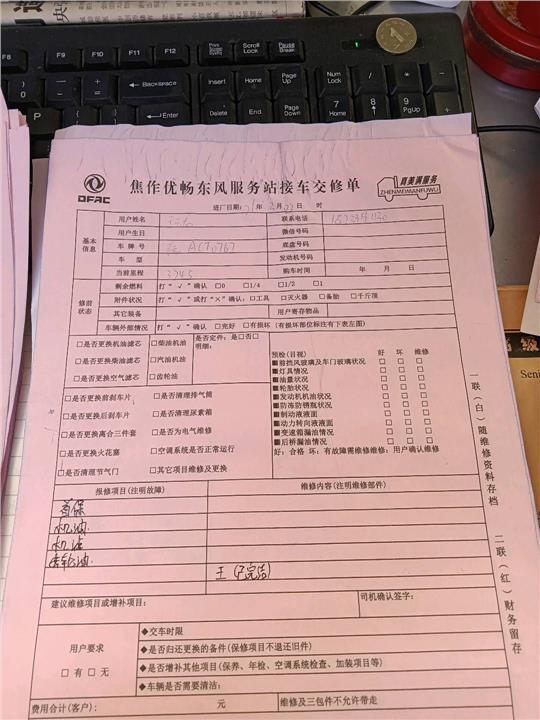 F8
F9
F10
F11
F12
Scroll
Lock
Pause
Break
Backspace
Insert
Home
Page
Up
Num
Lock
Enter
Delete
End
Page
Down
7
Home
8
9
PgUp
DFAC
焦作优畅东风服务站接车交修单
真美满服务
ZHENMEIMANFUWU
进厂日期: 年 月 日 时
基本信息
用户姓名
联系电话
用户生日
微信号码
车牌号
底盘号码
车 型
发动机号码
当前里程
3745
购车时间
年 月 日
修前状态
剩余燃糙
打“√”确认 □0 □1/4 □1/2 □1
附件状况
打“√”或打“×”确认:□工具 □灭火器 □备胎 □千斤顶
其它装备
用户寄存物品
车辆外部情况
打“√”确认 □完好 □有损坏(有损坏部位标注有下表左图)
□是否更换机油滤芯
□柴油机油
是否定件:是□否□
明细:
□是否更换柴油滤芯
□汽油机油
□是否更换空气滤芯
□齿轮油
□是否更换前刹车片
□是否清理排气筒
□是否更换后刹车片
□是否清理尿素箱
□是否更换离合三件套
□是否为电气维修
□是否更换火花塞
□空调系统是否正常运行
□是否清理节气门
□其它项目维修及更换
预检(目视) 好 坏 维修
■前挡风玻璃及车门玻璃状况 □ □ □
■灯具情况 □ □ □
■油量状况 □ □ □
■轮胎状况 □ □ □
■发动机机油状况 □ □ □
■防冻防锈瓶状况 □ □ □
■制动液液面 □ □ □
■动力转向液液面 □ □ □
■变速箱漏油情况 □ □ □
■后桥漏油情况 □ □ □
好:合格 坏:有故障需维修维修:用户确认维修
报修项目(注明故障)
维修内容(注明维修部件)
首保
机油
机滤
齿轮油
建议维修项目或增补项目:
司机确认签字:
用户要求
□有 □无
◆交车时限
◆是否归还更换的备件(保修项目不退还旧件)
◆是否增补其他项目(保养、年检、空调系统检查、加装项目等)
◆车辆是否需要清洁:
费用合计(客户): 元
维修及三包件不允许带走
一联(白)随维修资料存档
二联(红)财务留存